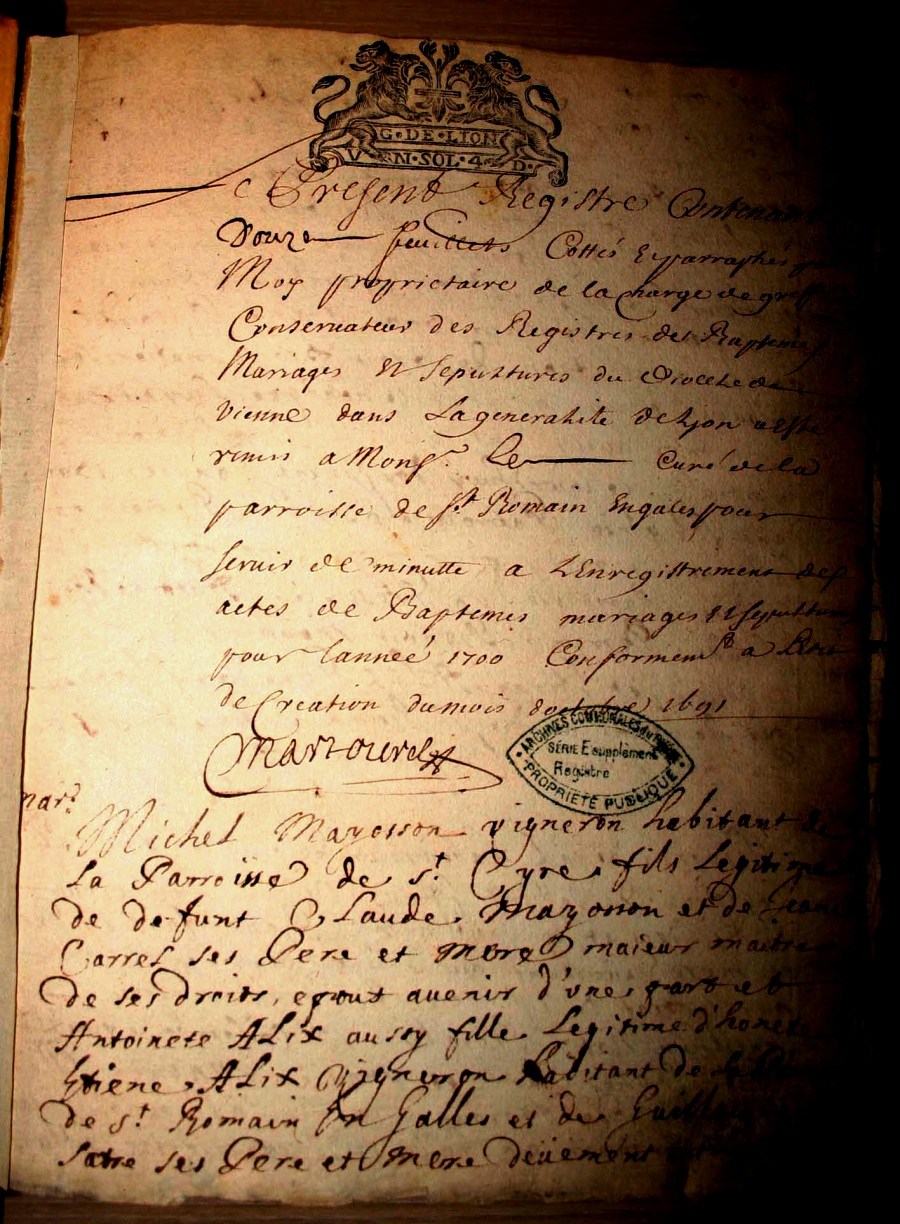 G·DE·LION
V·EN·SOL·4·D·
Ce Present Registre Contenant
Douze feuillets Cottés Eparraphés
Moy proprietaire de la charge de gref
Conservateur des Registres des Baptemes
Mariages Et Sepultures du Diocese de
Vienne dans La generalité de Lyon a Esté
remis a Monsr. Le Curé de la
parroisse de St Romain Engales pour
servir de minutte a L'Enregistrement des
actes de Baptemes mariages Et sepultures
pour lanneé 1700 Conformemt a L'Edit
de Creation du mois doctobre 1691
ARCHIVES COMMUNALES du RHÔNE
SÉRIE E supplément
Registre
PROPRIÉTÉ PUBLIQUE
mar.
Michel Mayosson vigneron habitant de
La Parroisse de st. Cyre fils Legitime
de defunt Claude Mayosson et de
Carrel ses Pere et mere maieur maitre
de ses droits, epout avenir d'une part et
Antoinete ALix aussy fille Legitime d'honete
Etiene ALix vigneron habitant de
de st Romain En Galles et de
ses Pere et mere deüement